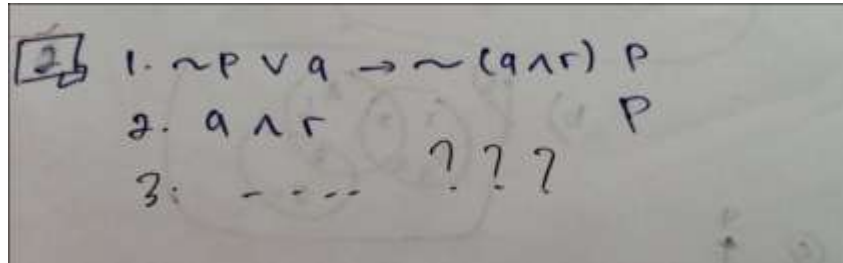 2 1. ~P ∨ q → ~(q∧r) P
2. q ∧ r P
3: ---- ???